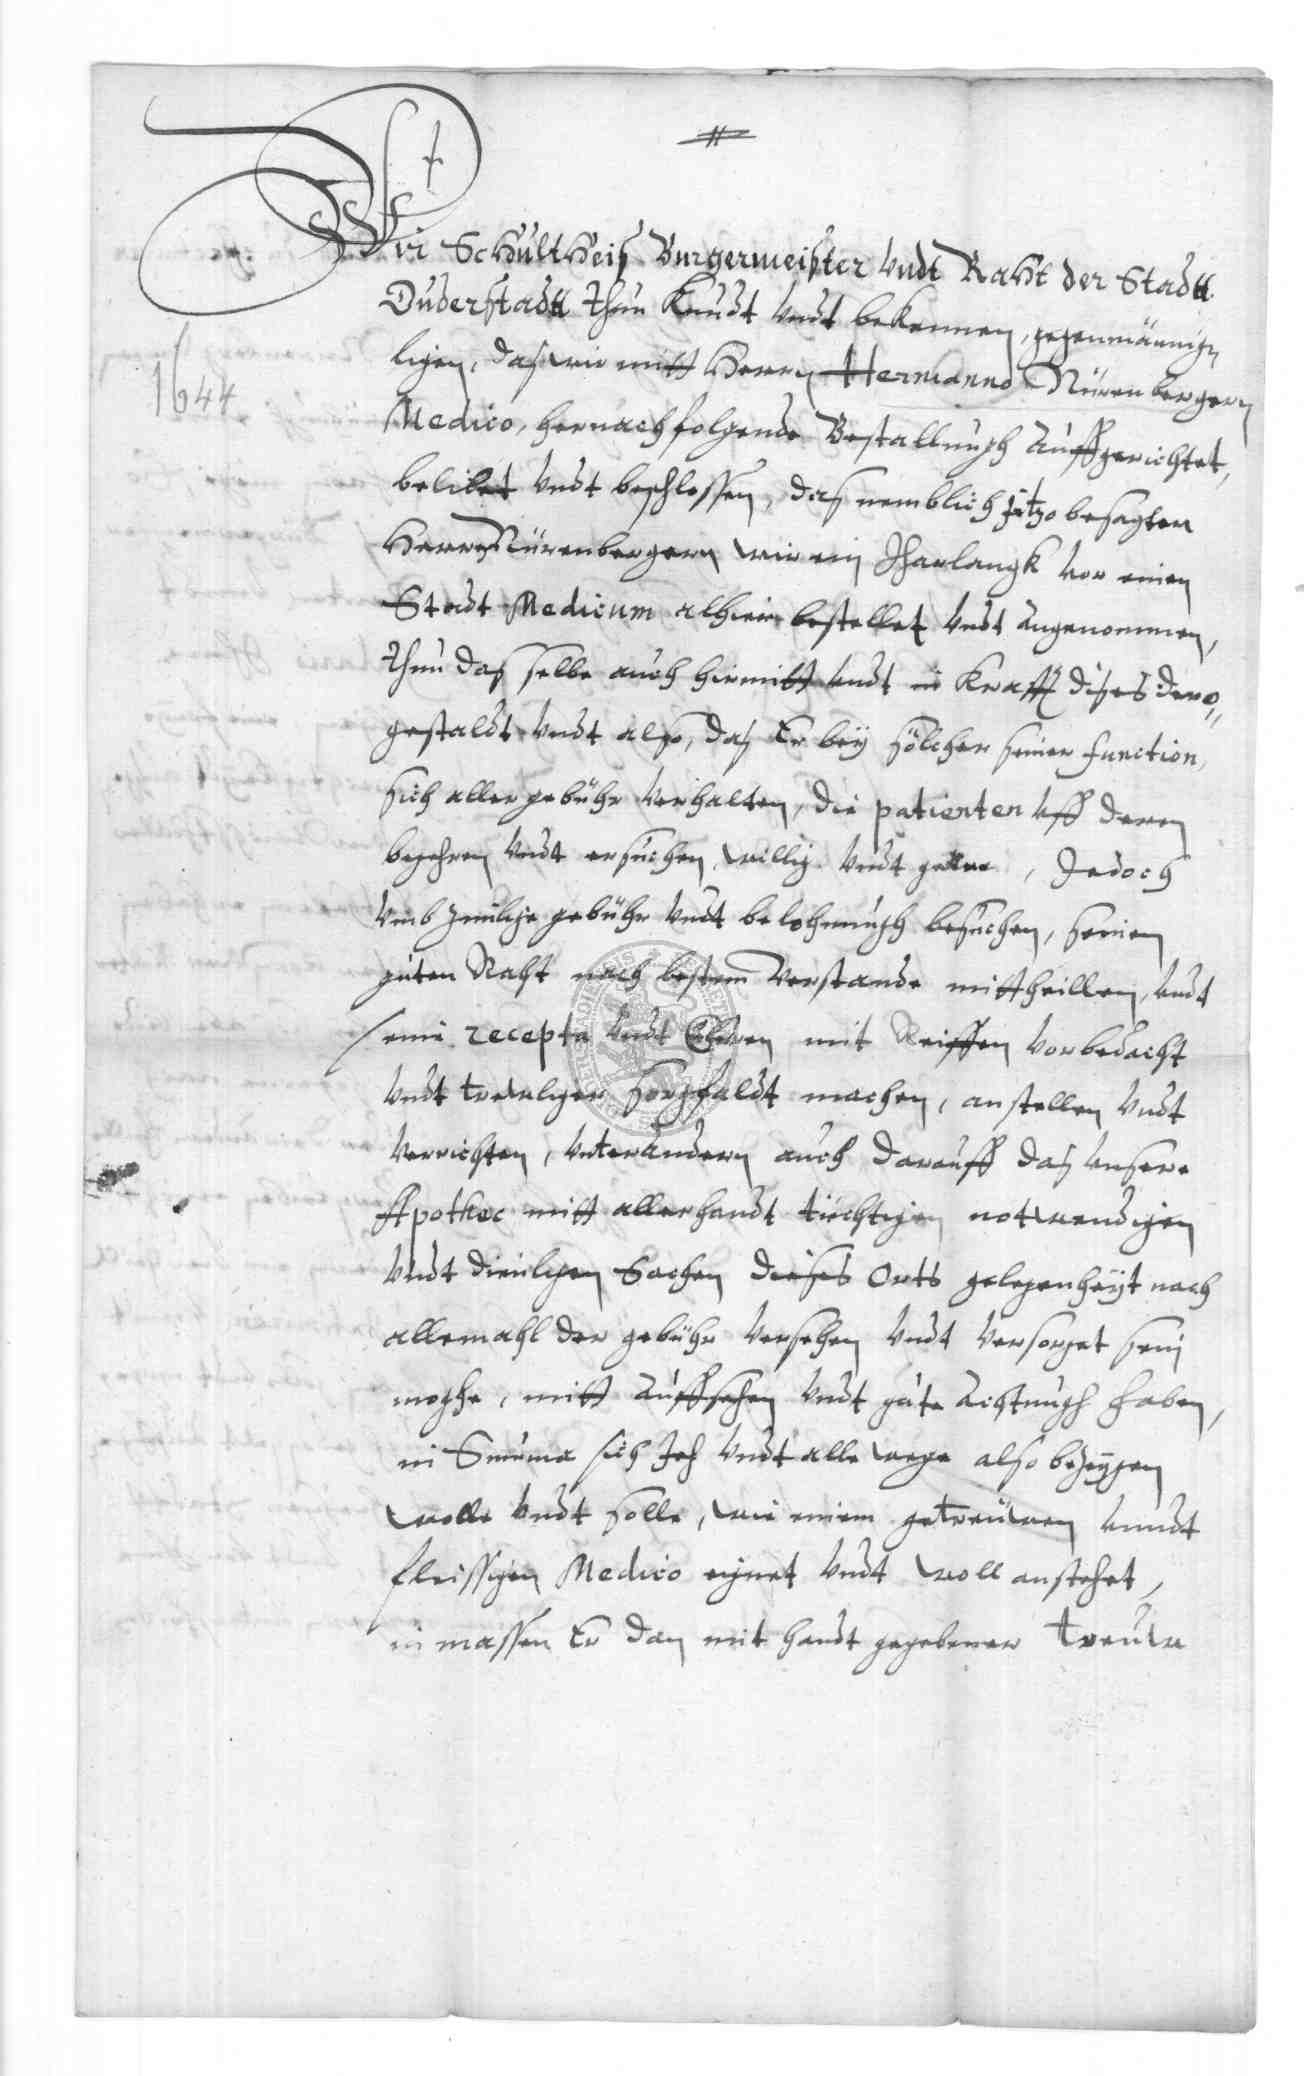 Wir Schultheiß Burgermeister undt Raht der Stadtt
Duderstadtt thun Kundt undt bekennen, gegenmännig
lichen, daß wir mitt Herrn Hermanno Nürenbergern
1644
Medico, hernachfolgende Bestallungh auffgerichtet,
belibet undt beschlossen, das nemblich itzo besagten
Herrn Nürenbergern wir ein Jharlangk vor einen
Stadt Medicum alhier bestellet undt angenommen,
thun daß selbe auch hirmitt undt in Krafft dises dero„
gestaldt undt also, daß Er bey solcher seiner function,
sich aller gebühr verhalten, die patienten uff deren
begehren undt ersuchen, willig undt gerne, Jedoch
umb zimliche gebühr undt belohnungh besuchen, seinen
guten Raht nach bestem verstande mittheillen, undt
seine recepta undt Curen mit Reiffen vorbedacht
undt trewlicher sorgfaldt machen, anstellen undt
verrichten, unterandern auch darauff daß unsere
Apothec mitt allerhandt tüchtigen notwendigen
undt dienlichen Sachen dieses Orts gelegenheyt nach
allemahl der gebühr versehen undt versorget sein
moghe, mitt auffsehen undt gute achtungh haben,
in Summa sich Jeh undt alle wege also bezeygen
wolle undt solle, wie einem getreuwen unndt
fleissigen Medico eignet undt woll anstehet,
in massen Er dan mit handt gegebener treuw